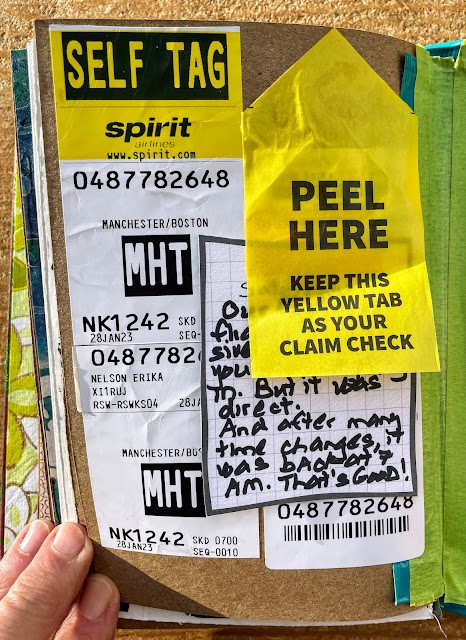 SELF TAG
spirit
airlines
www.spirit.com
0487782648
MANCHESTER/BOSTON
MHT
NK1242 SKD
28JAN23 SEQ-
04877826
NELSON ERIKA
XI1RUJ
RSW-RSWKS04 28JA
MANCHESTER/BOS
MHT
NK1242 SKD 0700
28JAN23 SEQ-0010
PEEL
HERE
KEEP THIS
YELLOW TAB
AS YOUR
CLAIM CHECK
you
. But it was
direct.
And after many
time changes, it
was back at 7
AM. That's Good!
0487782648